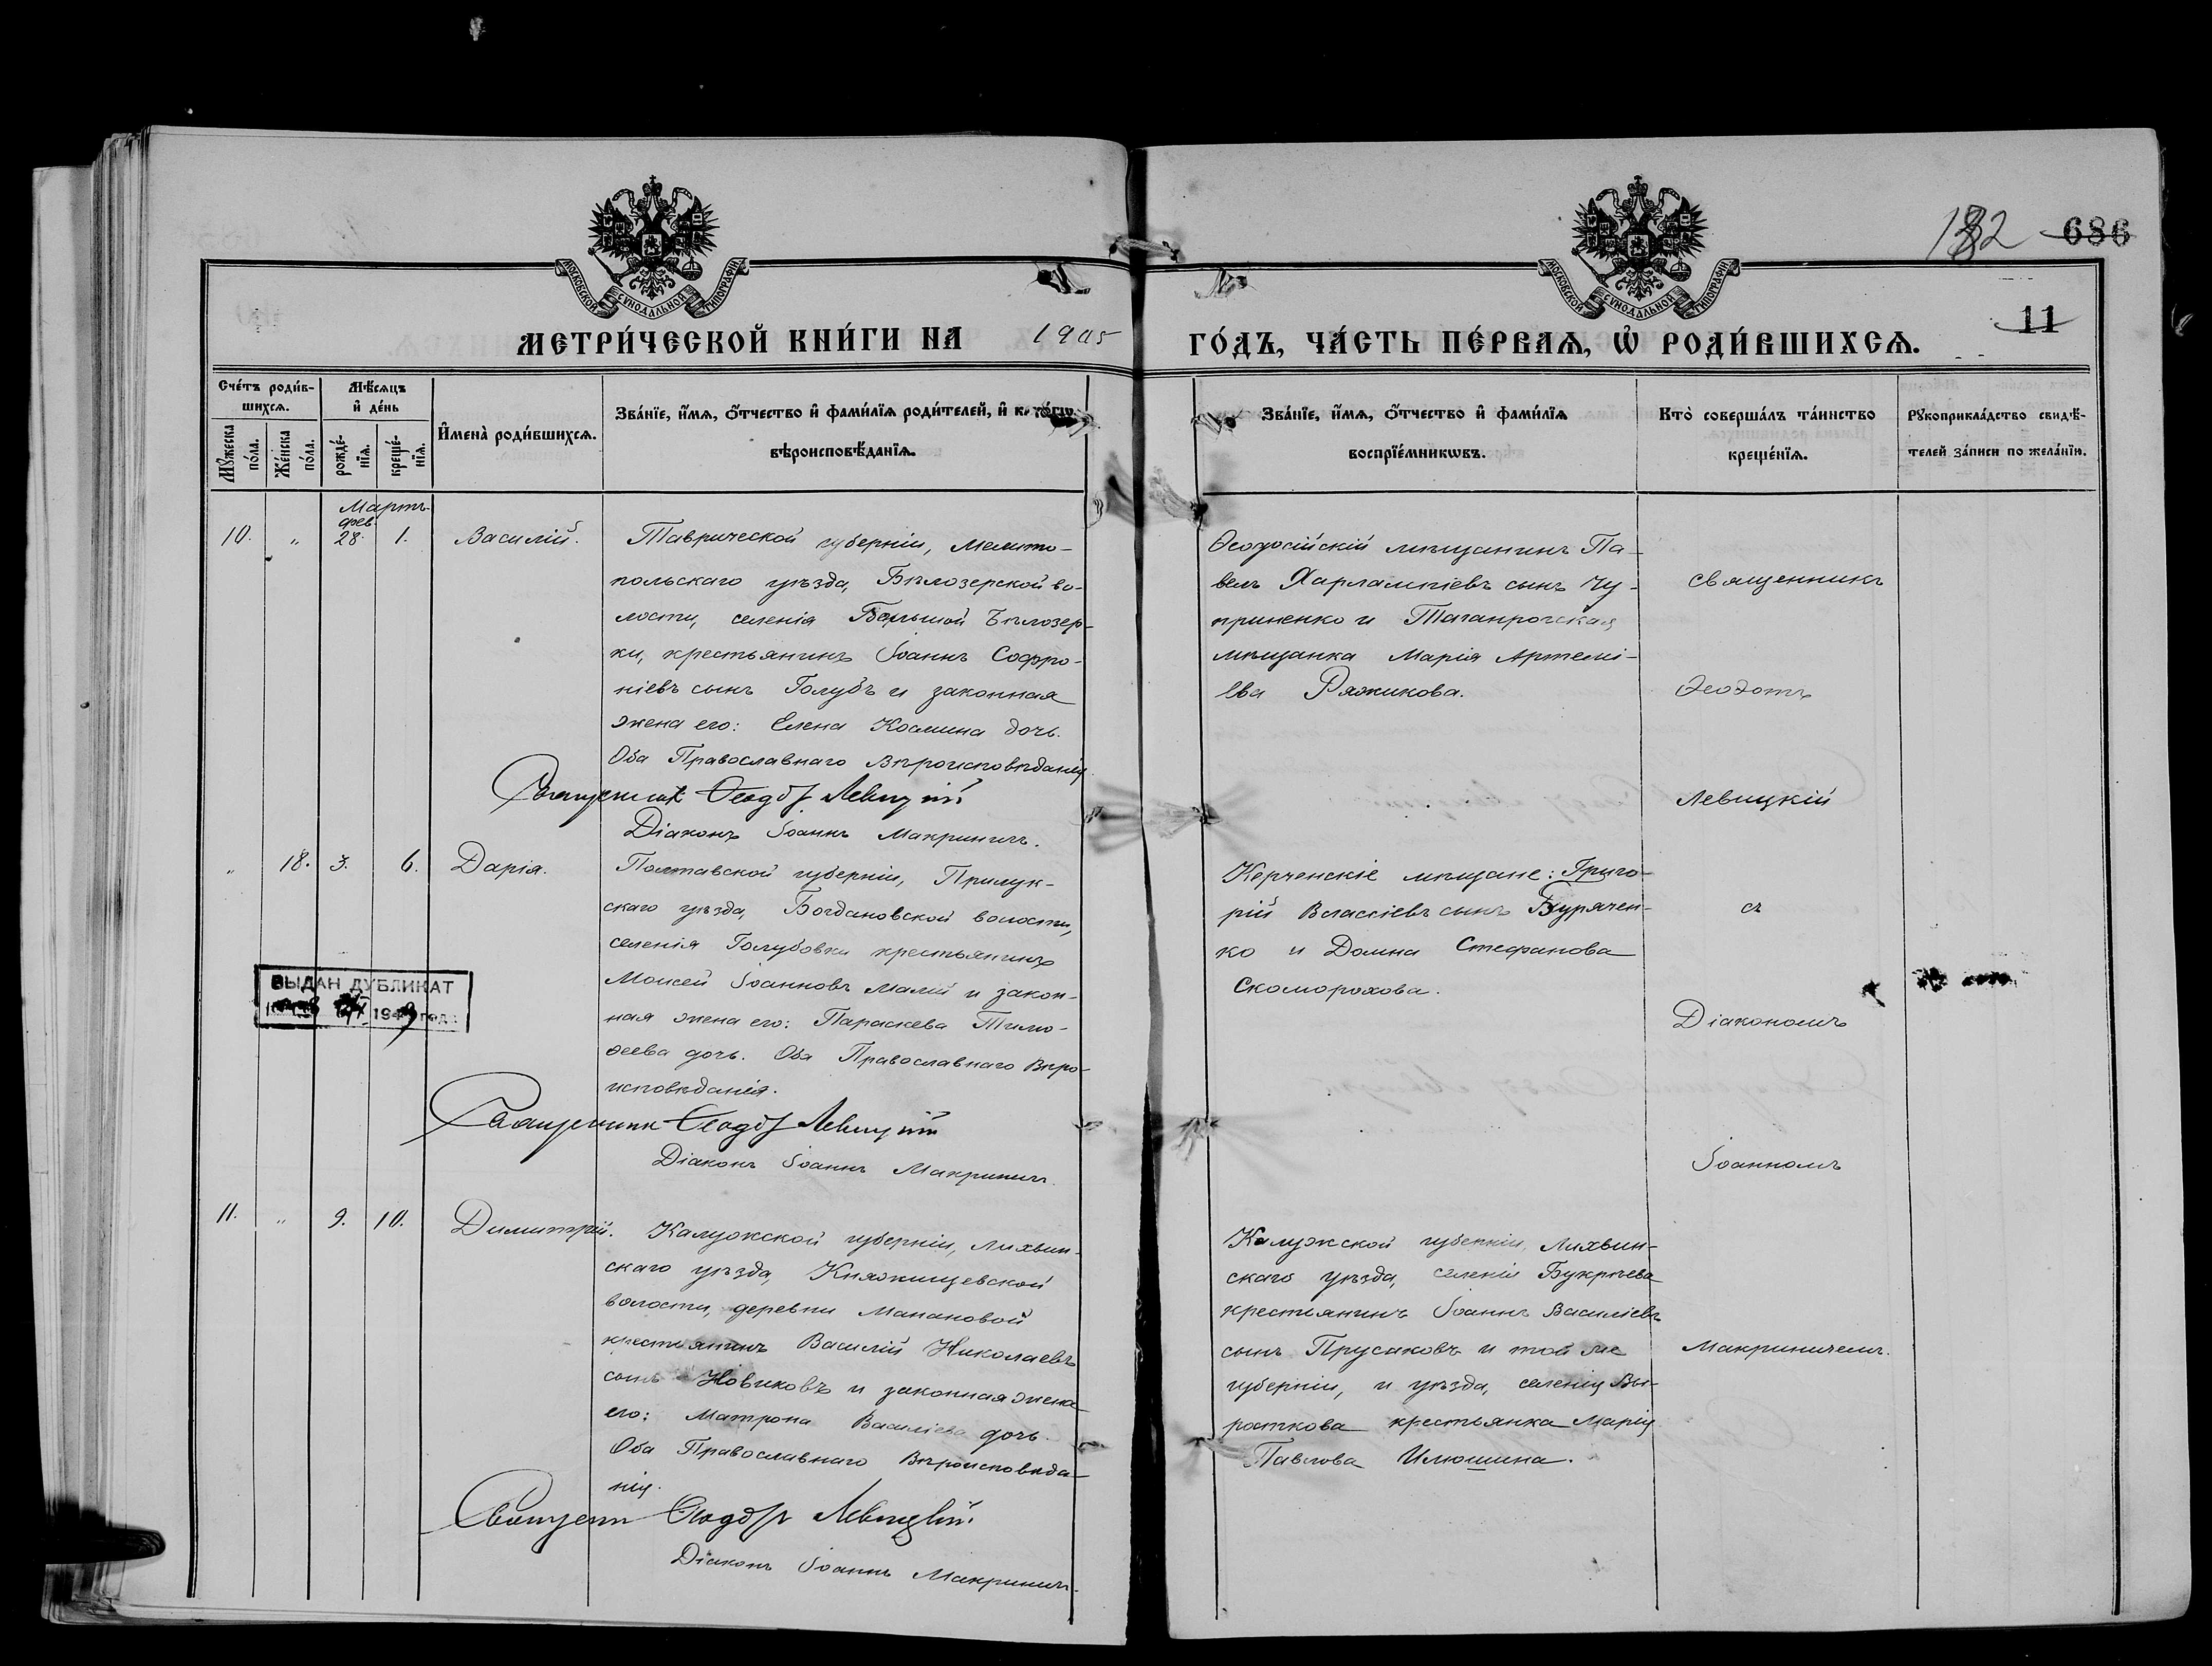 132 686
МОСКОВСКОЙ СѴНОДАЛЬНОЙ ТИПОГРАФІИ
МОСКОВСКОЙ СѴНОДАЛЬНОЙ ТИПОГРАФІИ
11
МЕТРИ́ЧЕСКОЙ КНИ́ГИ НА 1905 ГО́ДЪ, ЧА́СТЬ ПЕ́РВАѦ, Ѡ҆ РОДИ́ВШИХСѦ.
Сче́тъ роди́в-
шихсѧ.
Мꙋ́жеска по́ла.
Же́нска по́ла.
Мѣ́сѧцъ
и҆ де́нь
рожде́-
нїѧ.
креще́-
нїѧ.
И҆мена̀ роди́вшихсѧ.
Зва́нїе, и҆́мѧ, ѻ҆́тчество и҆ фами́лїѧ роди́телей, и҆
вѣроисповѣ́данїѧ.
Зва́нїе, и҆́мѧ, ѻ҆́тчество и҆ фами́лїѧ
воспрїе́мникѡвъ.
Кто̀ соверша́лъ та́инство
креще́нїѧ.
Рꙋкоприкла́дство свидѣ́-
телей за́писи по жела́нїю.
Мартъ
фев.
10. " 28. 1. Василій.
Таврической губерніи, Мелито-
польскаго уѣзда, Бѣлозерской во-
лости, селенія Большой Бѣлозер-
ки, крестьянинъ Іоаннъ Софро-
ніевъ сынъ Голубъ и законная
жена его: Елена Космина дочь.
Оба Православнаго Вѣроисповѣданія
Священникъ Ѳеодотъ Левицкій
Діаконъ Іоаннъ Макриничъ.
Ѳеодосійскій мѣщанинъ Па-
велъ Харлампіевъ сынъ Чу-
приненко и Таганрогская
мѣщанка Марія Артемі-
ева Ряжикова.
Священникъ
Ѳеодотъ
Левицкій
" 18. 3. 6. Дарія.
Полтавской губерніи, Прилук-
скаго уѣзда, Богдановской волости,
селенія Голубовки крестьянинъ
Моисей Іоанновъ Малій и закон-
ная жена его: Параскева Тимо-
ѳеева дочь. Оба Православнаго Вѣро-
исповѣданія.
Священникъ Ѳеодотъ Левицкій
Діаконъ Іоаннъ Макриничъ
Керченскіе мѣщане: Григо-
рій Власіевъ сынъ Бурячен-
ко и Домна Стефанова
Скоморохова.
съ
Діакономъ
Іоанномъ
ВЫДАН ДУБЛИКАТ
194 года
11. " 9. 10. Димитрій.
Калужской губерніи, Лихвин-
скаго уѣзда, Княжищевской
волости, деревни Манановой
крестьянинъ Василій Николаевъ
сынъ Новиковъ и законная жена
его: Матрона Василіева дочь.
Оба Православнаго Вѣроисповѣда-
нія.
Священн Ѳеодотъ Левицкій
Діаконъ Іоаннъ Макриничъ.
Калужской губерніи, Лихвин-
скаго уѣзда, селенія Букрѣева
крестьянинъ Іоаннъ Василіевъ
сынъ Прусаковъ и той же
губерніи, и уѣзда, селенія Вы-
роткова крестьянка Марія
Павлова Илюшина.
Макриничемъ.